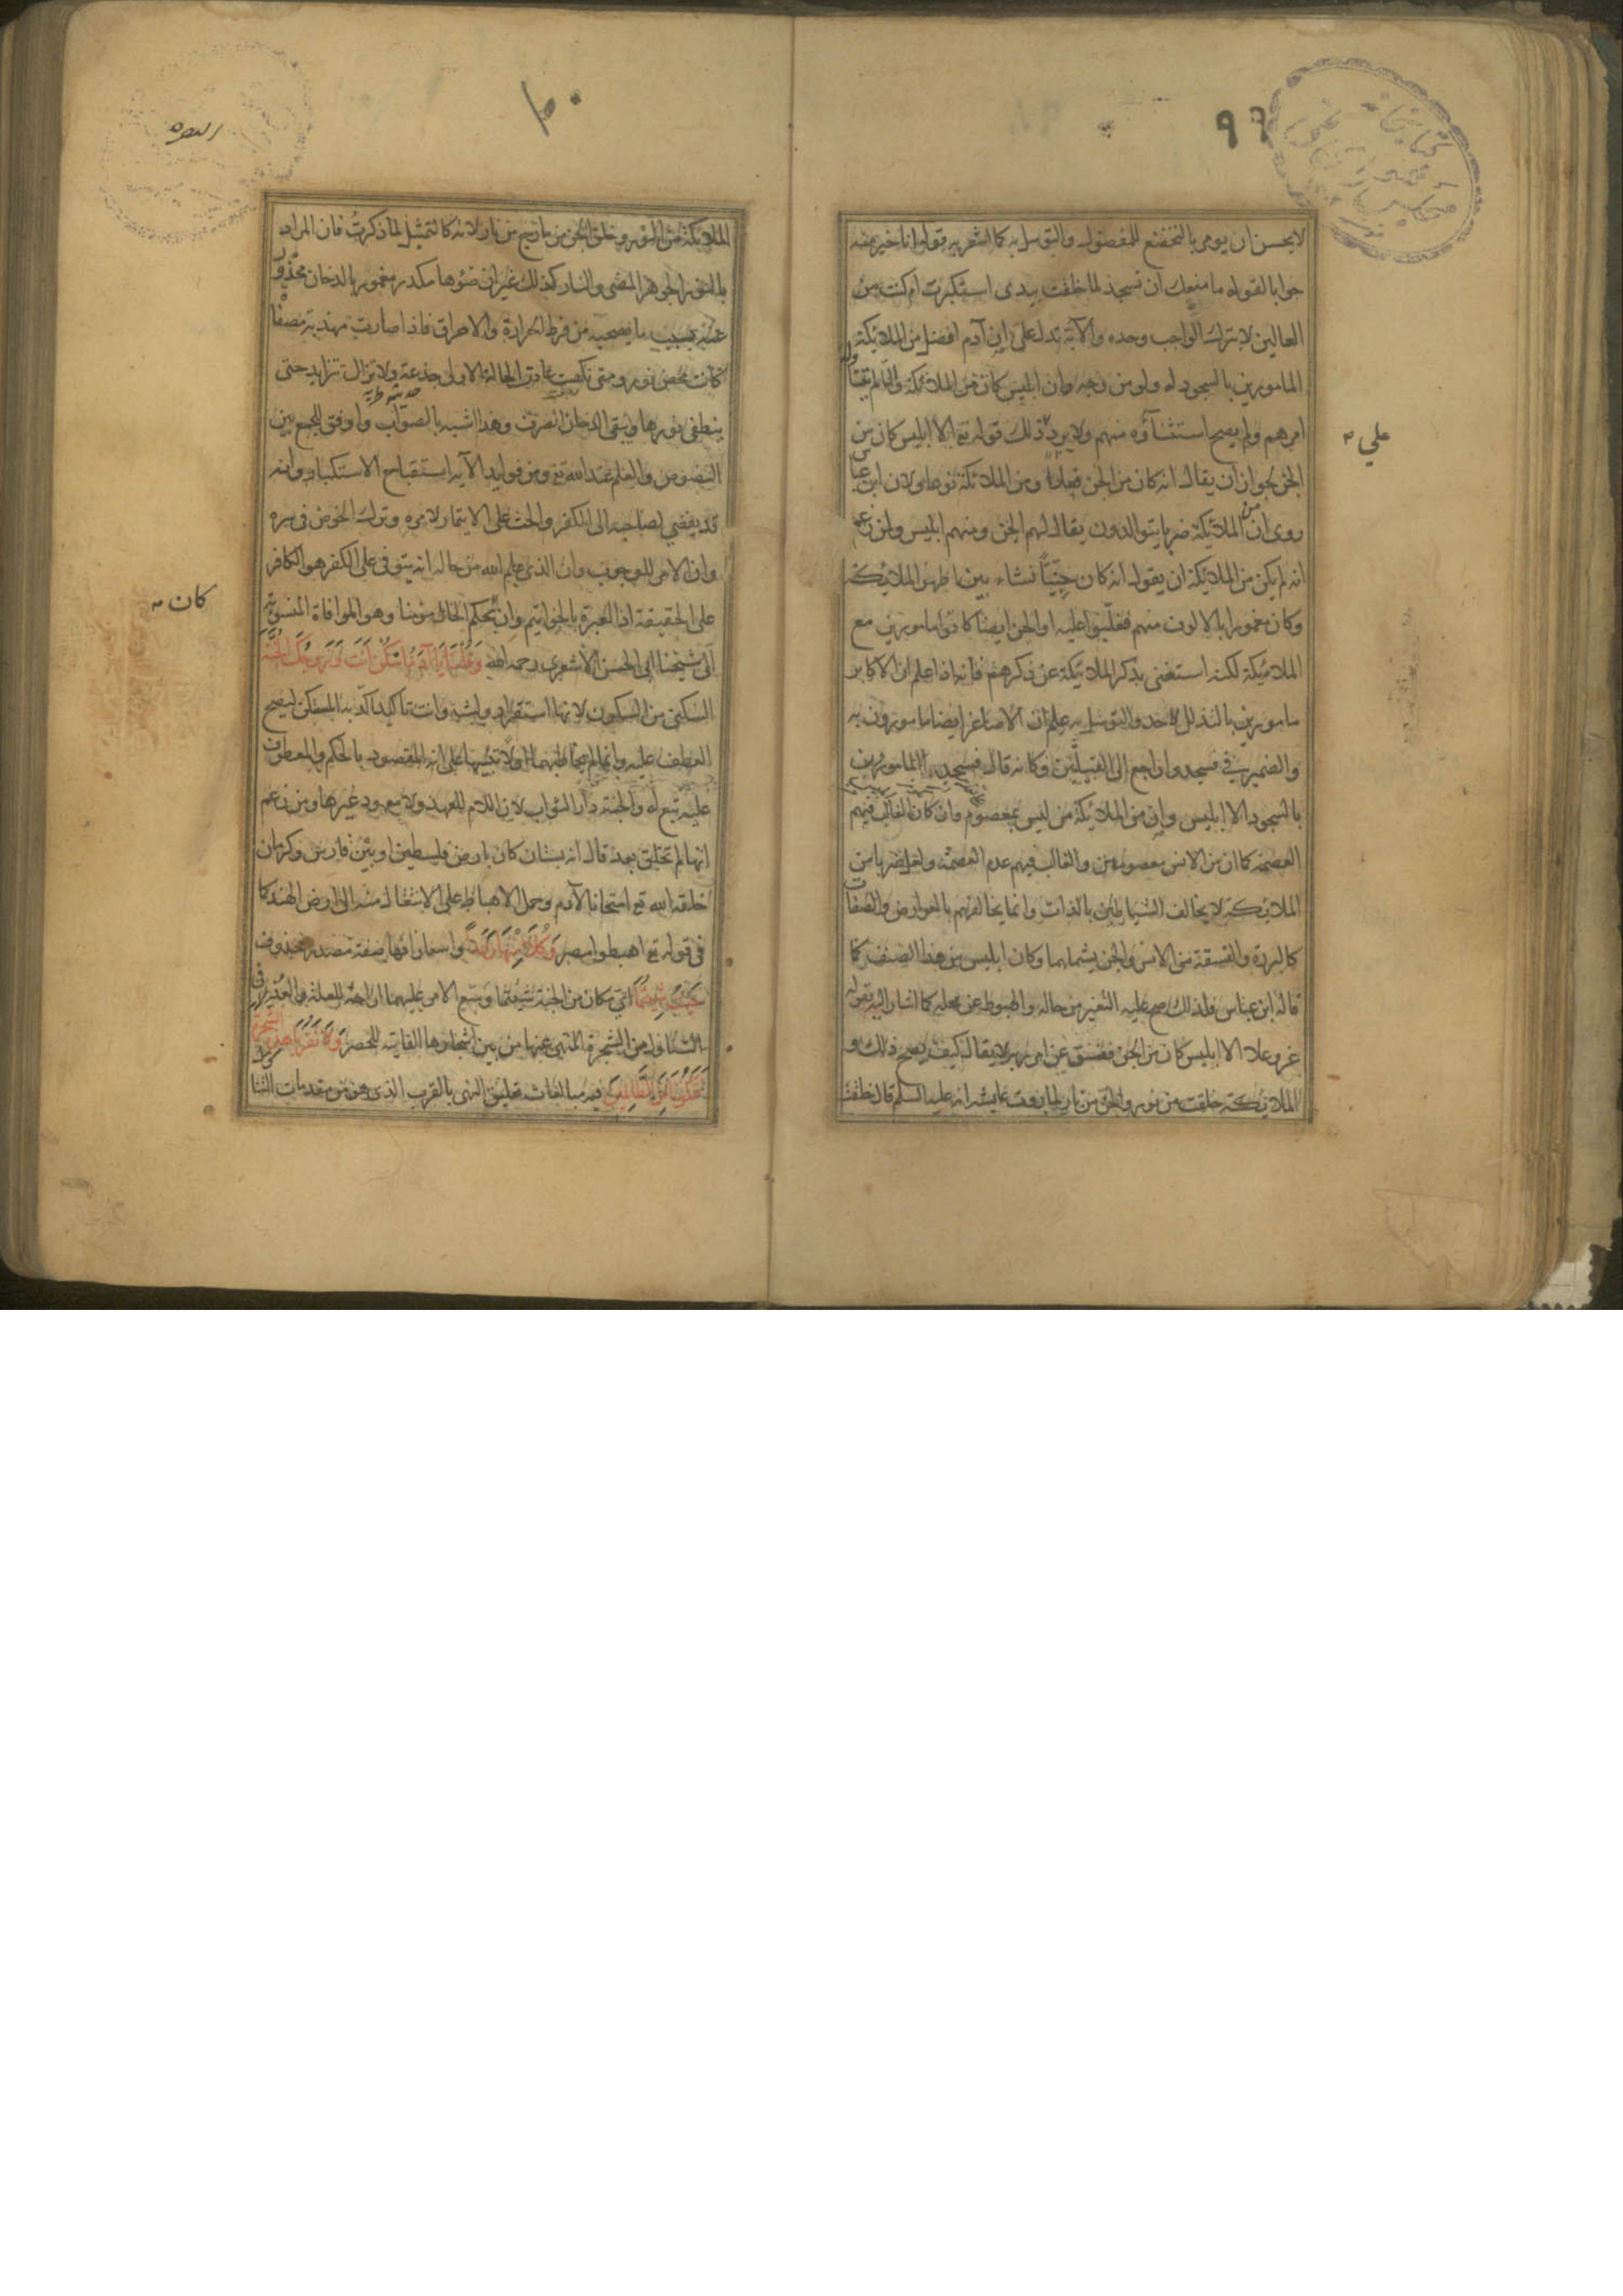 ٩٩
لا يحسن ان يومر بالتخضع للمفضول والتوسل به كما اشعر به قوله انا خير منه
جوابا لقوله ما منعك ان تسجد لما خلقت بيدى استكبرت ام كنت من
العالين لا بترك الواجب وحده والآية تدل على ان آدم افضل من الملائكة
المامورين بالسجود له ولو من وجه وان ابليس كان من الملائكة والا لم يتناوله
امرهم ولم يصح استثناؤه منهم ولا يرد ذلك قوله تع الا ابليس كان من
الجن لجواز ان يقال انه كان من الجن فعلا ومن الملائكة نوعا ولان ابن عباس
روى ان من الملائكة ضربا يتوالدون يقال لهم الجن ومنهم ابليس ولمن زعم
انه لم يكن من الملائكة ان يقول انه كان جنيا نشاء بين اظهر الملائكة
وكان مغمورا بالالوف منهم فغلبوا عليه او الجن ايضا كانوا مامورين مع
الملائكة لكنه استغنى بذكر الملائكة عن ذكرهم فانه اذا علم ان الاكابر
مامورين بالتذلل لاحد والتوسل به علم ان الاصاغر ايضا مامورون به
والضمير في فسجدوا راجع الى القبيلين وكانه قال فسجد المامورون
بالسجود الا ابليس وان من الملائكة من ليس بمعصوم وان كان الغالب فيهم
العصمة كما ان من الانس معصومين والغالب فيهم عدم العصمة ولعل ضربا من
الملائكة لا يخالف الشياطين بالذات وانما يخالفهم بالعوارض والصفات
كالبررة والفسقة من الانس والجن يشملهما وكان ابليس من هذا الصنف كما
قاله ابن عباس فلذلك صح عليه التغير من حاله والهبوط عن محله كما اشار اليه بقوله
عز وعلا الا ابليس كان من الجن ففسق عن امر ربه لا يقال كيف يصح ذلك و
الملائكة خلقت من نور والجن من نار لما روت عايشه انه عليه السلم قال خلقت
علي
١٠٠
الملائكة من النور وخلق الجن من مارج من نار لانه كالتمثيل لما ذكرت فان المراد
بالنور الجوهر المضى والنار كذلك غير ان ضوءها مكدر مغمور بالدخان محذور
عنه بسبب ما يصحبه من فرط الحرارة والاحراق فاذا صارت مهذبة مصفاة
كانت محض نور ومتى نكصت عادت الحالة الاولى جذعة ولا تزال تتزايد حتى
ينطفى نورها ويبقى الدخان الصرف وهذا اشبه بالصواب واوفق للجمع بين
النصوص والعلم عند الله تع ومن فوايد الآية استقباح الاستكبار وانه
قد يفضي لصاحبه الى الكفر والحث على الايتمار لامره وترك الخوض في سره
وان الامر للوجوب وان الذى علم الله من حاله انه يتوفى على الكفر هو الكافر
على الحقيقة اذ العبرة بالخواتيم وان بحكم الحال مومنا وهو الموافاة المنسوبة
الى شيخنا ابى الحسن الاشعرى رحمه الله وقلنا يا آدم اسكن انت وزوجك الجنة
السكنى من السكون لانها استقرار ولبث وانت تاكيد اكد به المستكن ليصح
العطف عليه وانما لم يخاطبهما اولا تنبيها على انه المقصود بالحكم والمعطوف
عليه تبع له والجنة دار الثواب لان اللام للعهد ولا معهود غيرها ومن زعم
انها لم تخلق بعد قال انه بستان كان بارض فلسطين او بين فارس وكرمان
خلقه الله تع امتحانا لآدم وحمل الاهباط على الانتقال منه الى ارض الهند كما
في قوله تع اهبطوا مصر وكلا منها رغدا واسعا رافها صفة مصدر محذوف
حيث شئتما اي مكان من الجنة شئتما وسع الامر عليهما ازاحة للعلة والعذر في
التناول من الشجرة المنهي عنها من بين اشجارها الفايتة للحصر ولا تقربا هذه الشجرة
فتكونا من الظالمين فيه مبالغات تعليق النهى بالقرب الذى هو من مقدمات التناول
كان